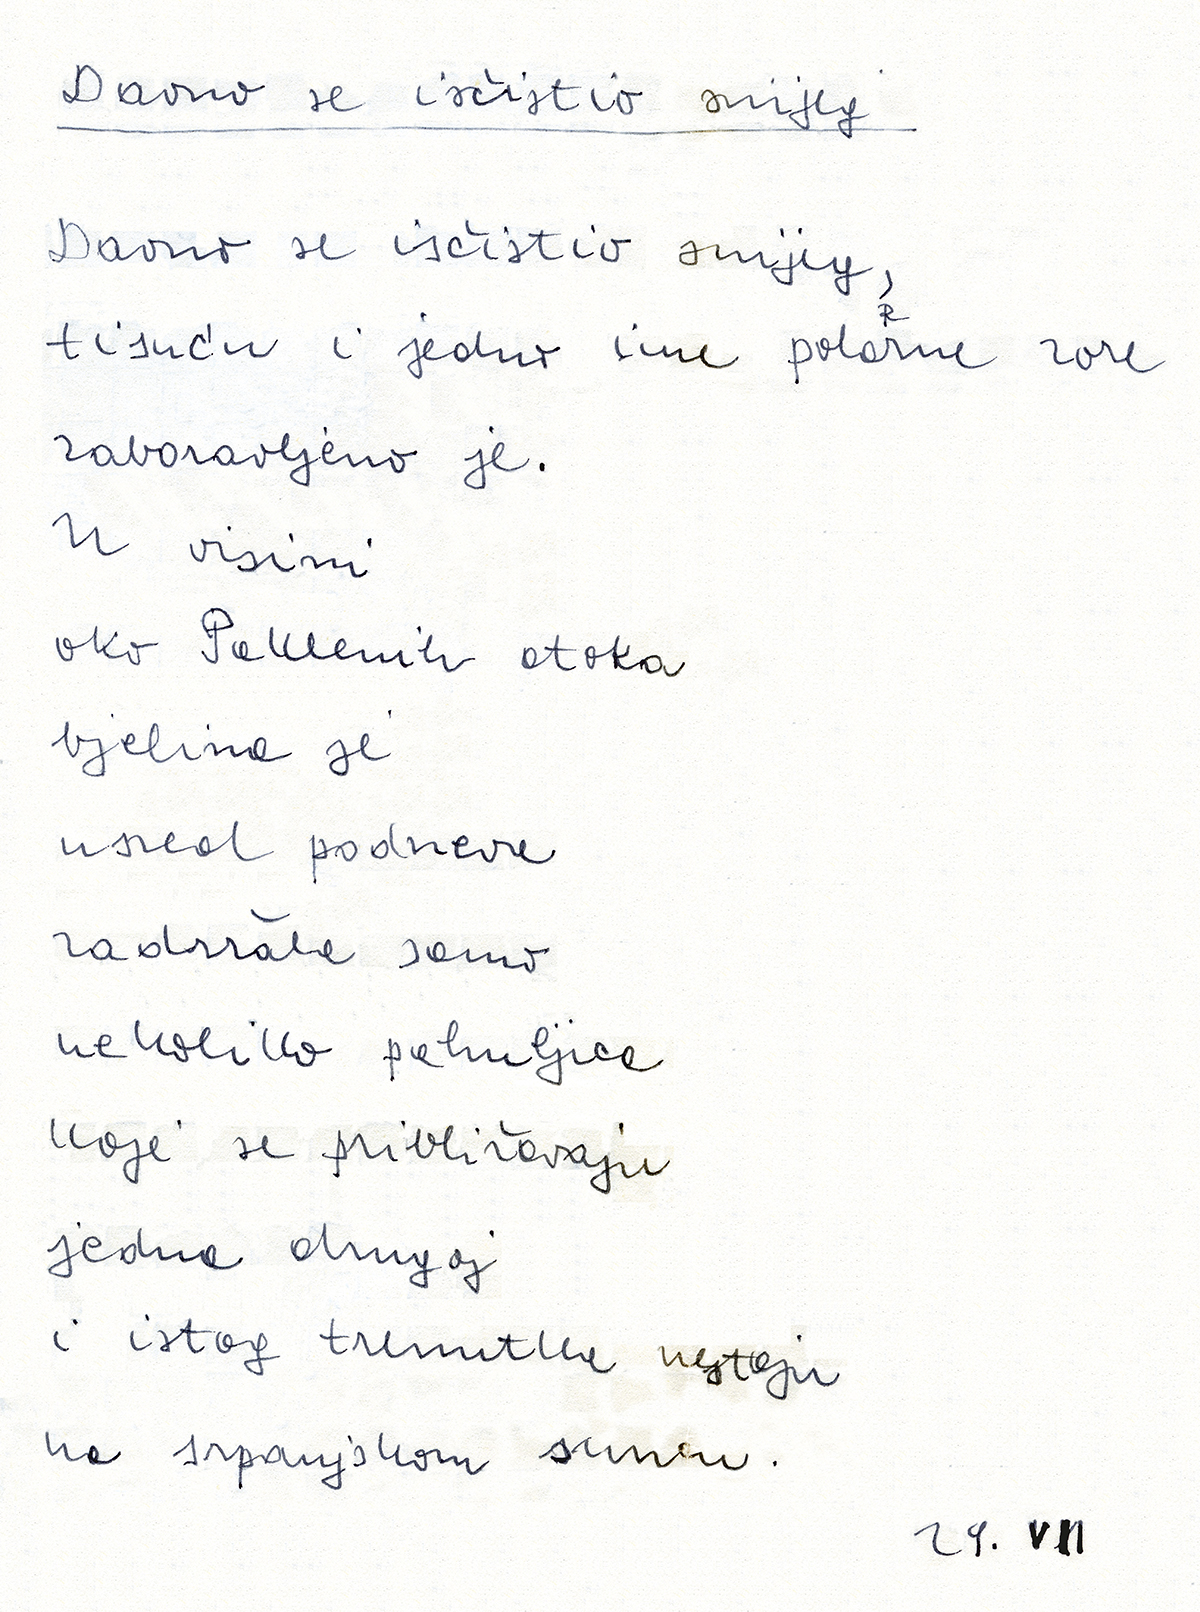 Davno se isčistio snijeg
Davno se isčistio snijeg,
R
tisuću i jedno ime polarne zore
zaboravljeno je.
U visini
oko Paklenih otoka
bjelina je
usred podneva
zadržala samo
nekoliko pahuljica
koje se približavaju
jedna drugoj
i istog trenutka nestaju
na srpanjskom suncu.
29. VII